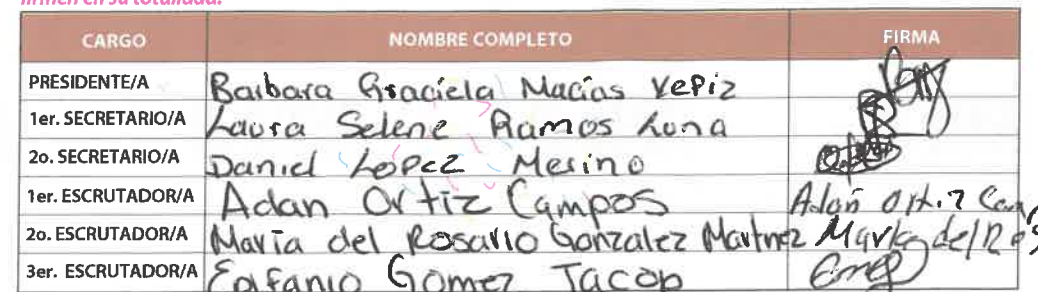 firmen en su totalidad.
CARGO NOMBRE COMPLETO FIRMA
PRESIDENTE/A Barbara Graciela Macías Yepiz
1er. SECRETARIO/A Laura Selene Ramos Luna
2o. SECRETARIO/A Daniel Lopez Merino
1er. ESCRUTADOR/A Adan Ortiz Campos Adan Ortiz Cam
2o. ESCRUTADOR/A María del Rosario Gonzalez Martnez María del Ros
3er. ESCRUTADOR/A Epifanio Gomez Jacop